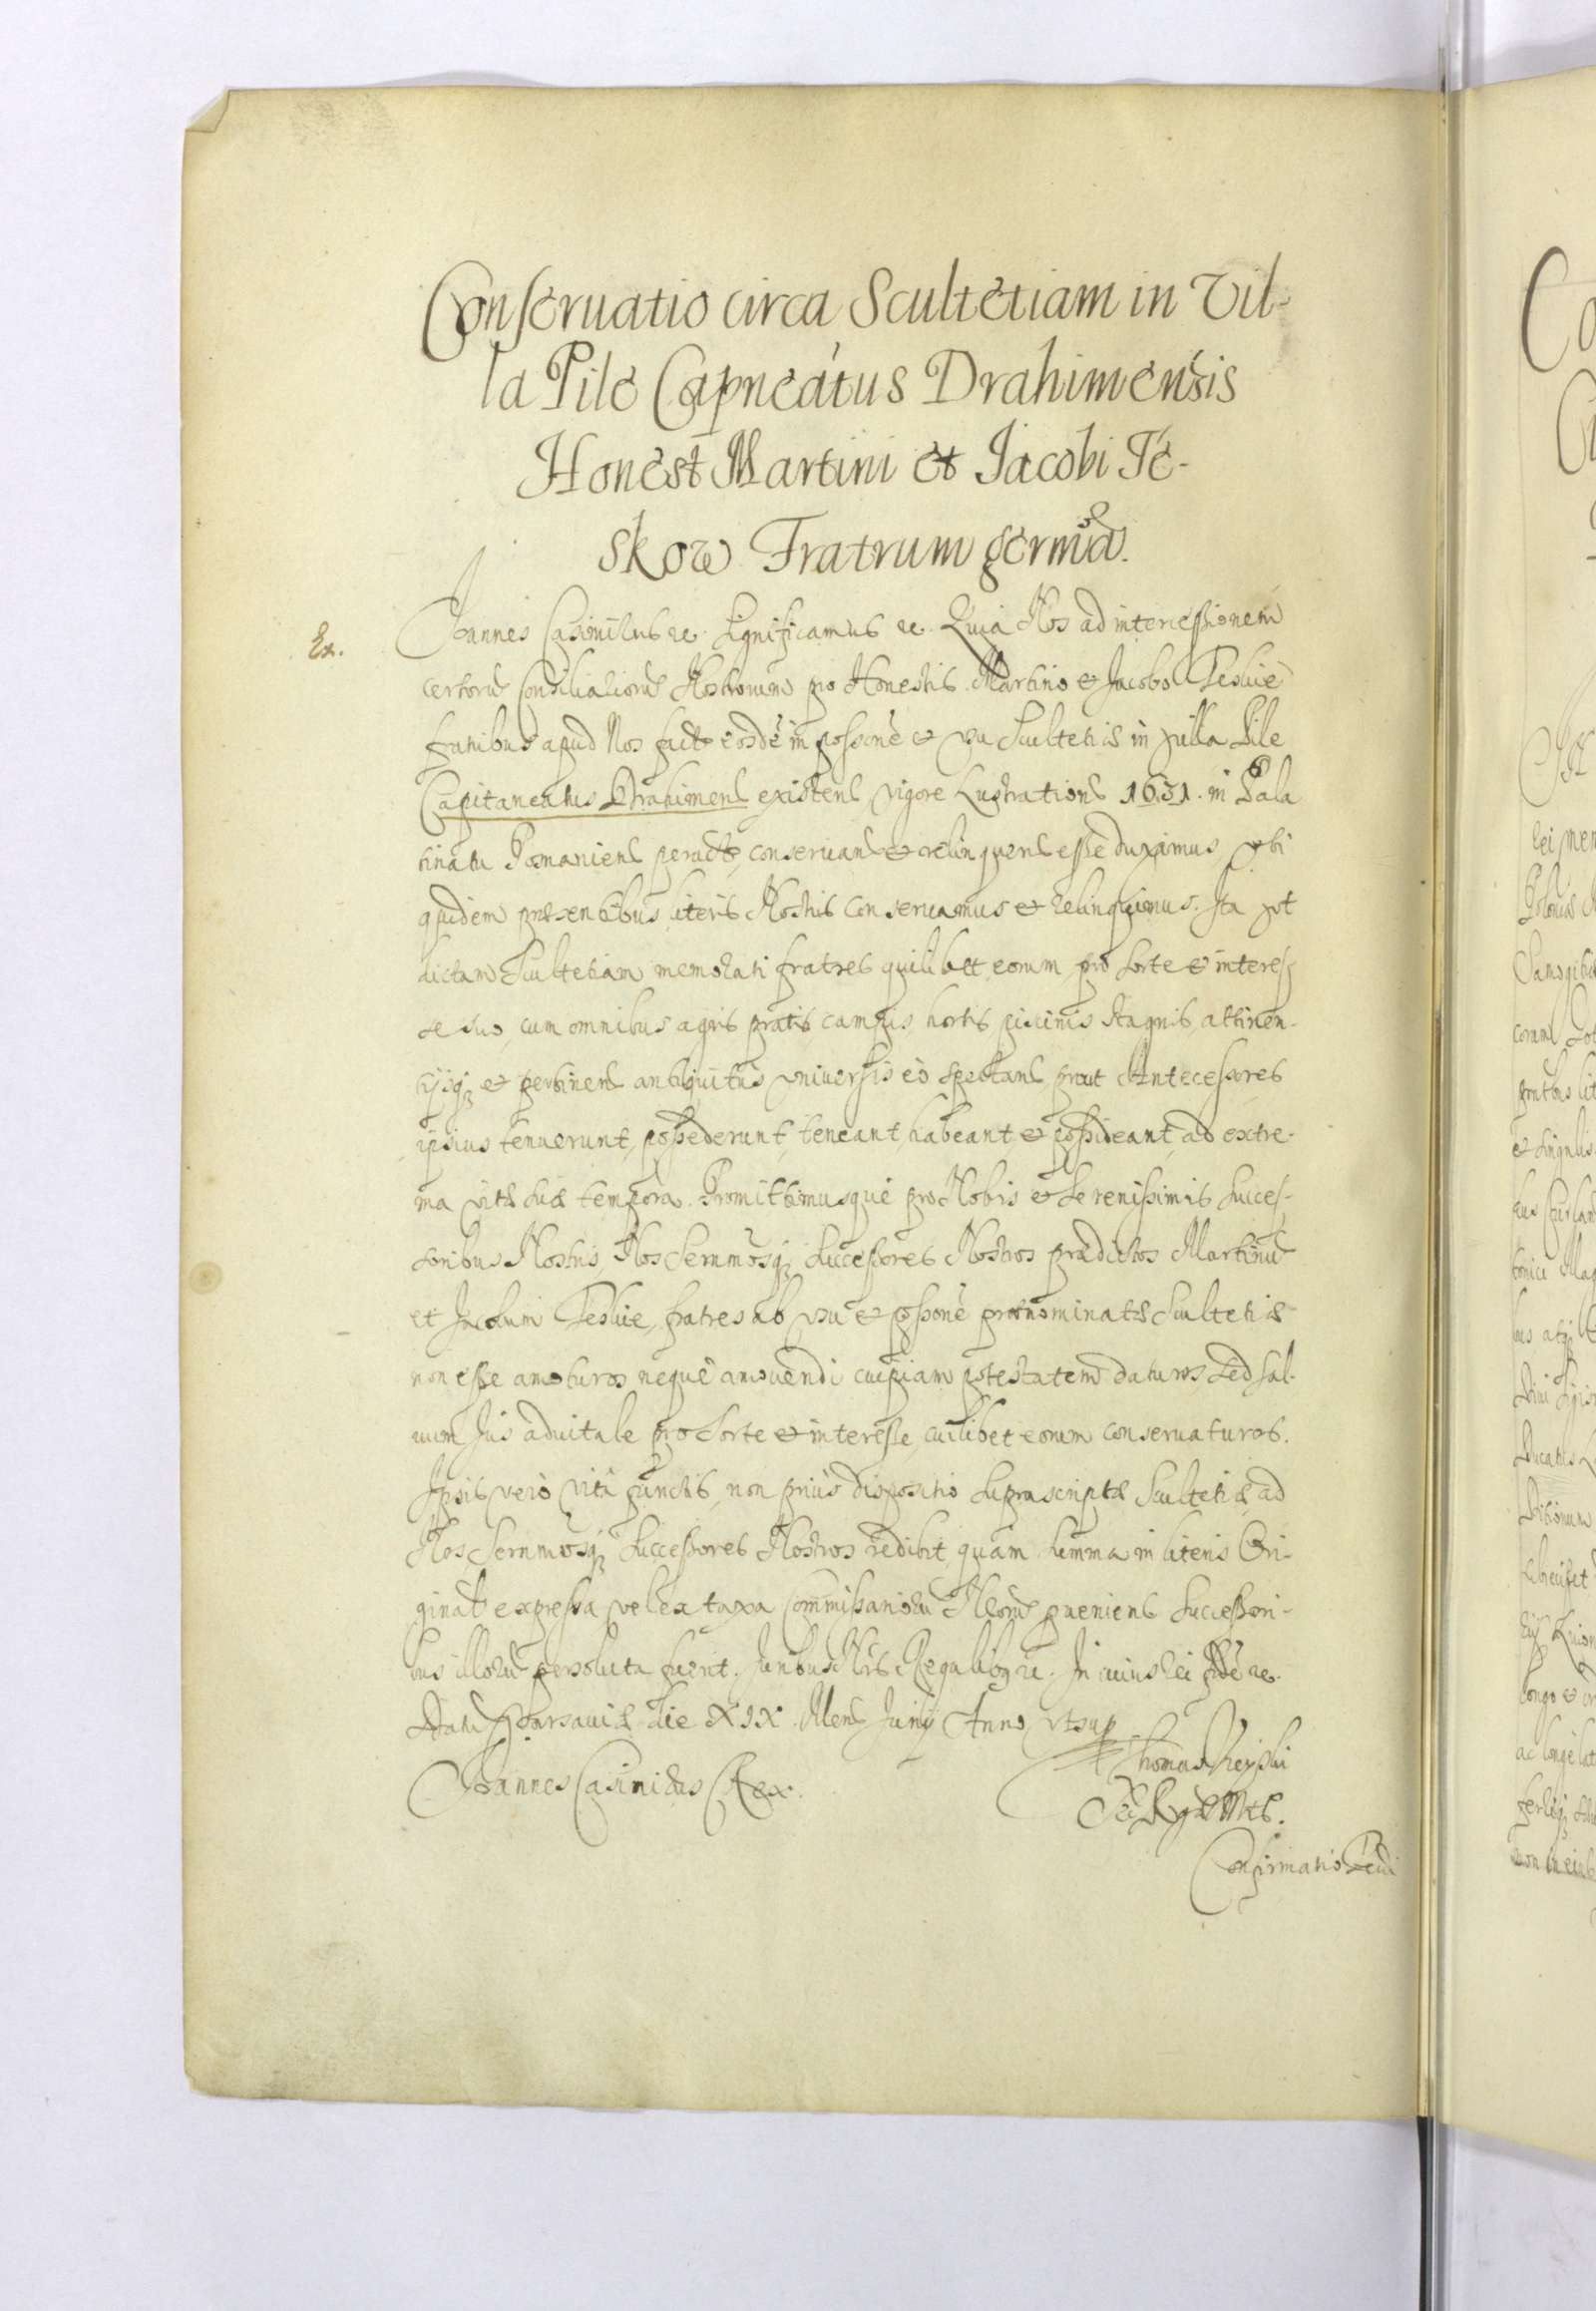 Conseruatio circa Scultetiam in Vil-
la Pile Capneatus Drahimensis
Honest Martini et Jacobi Te-
skow Fratrum germa.
Ex.
Joannes Casimirus etc. Significamus etc. Quia Nos ad intercessionem
certoru Consiliarioru Nostrorum pro Honestis Martino et Jacobo Teskie
fratribus apud Nos facta eosde in possone et usu Scultetiæ in villa Pile
Capitaneatus Drahimens existens vigore Lustrations 1631. in Pala
tinatu Posnaniens peracta, conseruans et relinquens esse duximus, uti
quidem præsentibus literis Nostris conseruamus et relinquimus. Ita ut
dictam Scultetiam memorati fratres quilibet eorum pro sorte et interes
se suo, cum omnibus agris pratis, campis, hortis, piscinis stagnis, attinen-
tijsq et pertinens antiquitus vniuersis eò spectans, prout Antecessores
ipsius tenuerunt, possederunt, teneant, habeant, et possideant, ad extre-
ma vitæ suæ tempora. Promittimusque pro Nobis et Serenissimis Succes-
soribus Nostris, Nos Sernmosq Successores Nostros prædictos Martinu
et Jacobum Teskie, fratres ab usu et possone prænominatæ Scultetiæ
non esse amoturos neque amouendi cuipiam potestatem daturos, sed sal-
uum Jus aduitale pro sorte et interesse, cuilibet eorum conseruaturos.
Ipsis verò vitâ functis, non priùs dispositio suprascriptæ Scultetiæ, ad
Nos Sernmosq Successores Nostros redibit, quàm summa in literis Ori-
ginal expressa vel ex taxa Commissarioru Nroru pueniens Successori-
bus illoru persoluta fuerit. Juribus Nris Regalibq etc. In cuius rei fide etc.
Datu Varsauiæ die XIX Mens Junij Anno utsup
Joannes Casimirus Rex.
Thomas
Sæ Rgæ Mtis.
Confirmatio